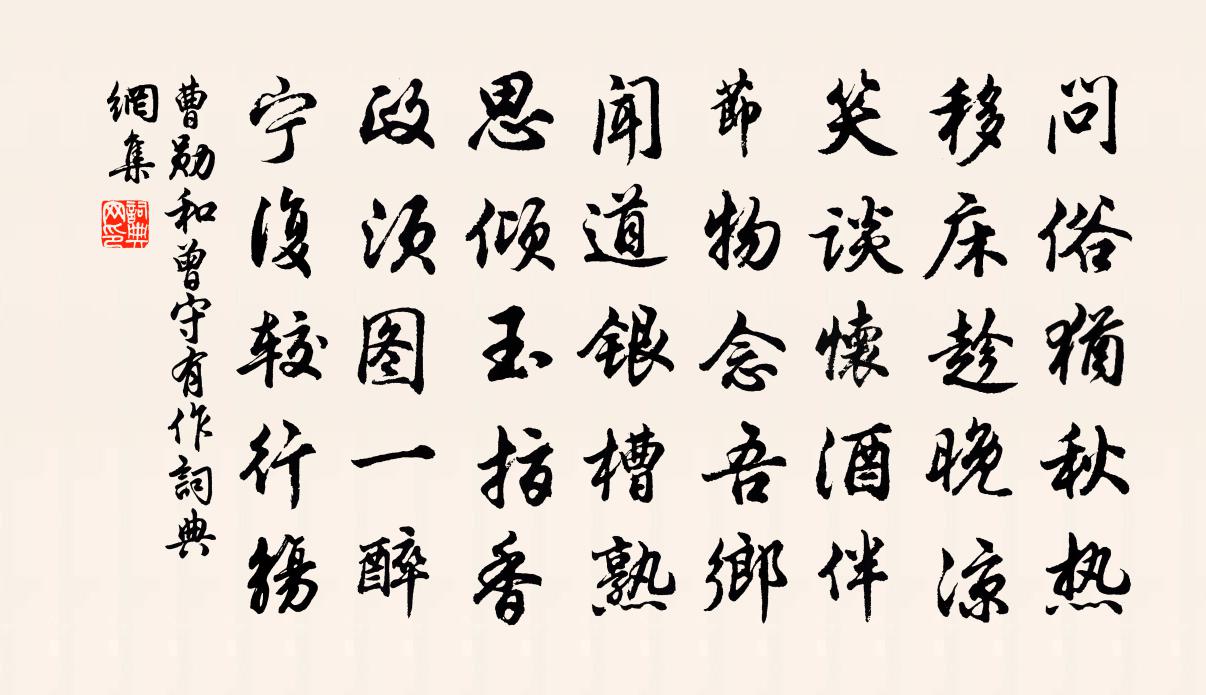 问俗犹秋热
移床趁晚凉
笑谈懷酒伴
節物念吾鄉
闻道银槽熟
思倾玉指香
政须图一醉
宁復较行觞
曹勋和曾守有作詞典
網集
詞典
网印